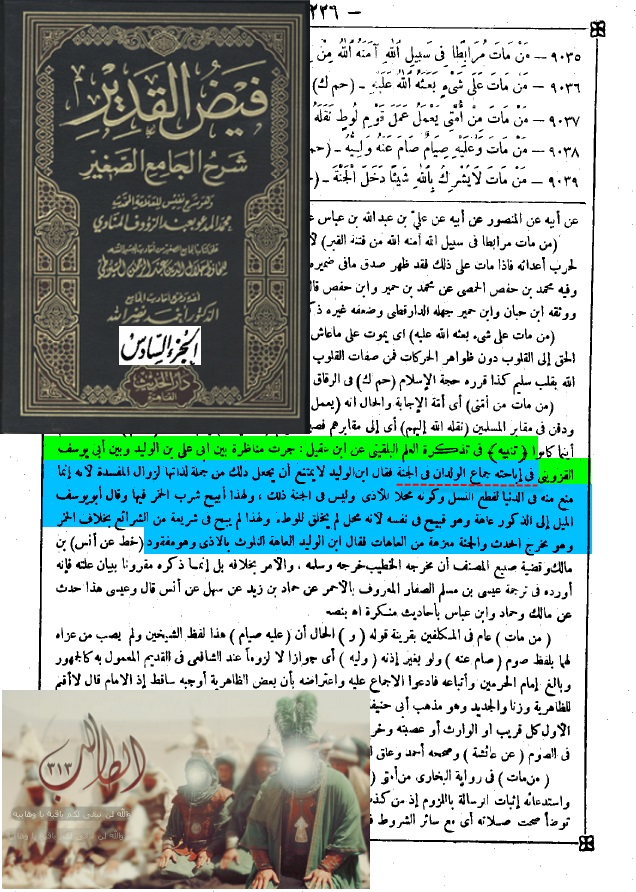 — ٢٣٦
٩٠٣٥ — مَنْ مَاتَ مُرَابِطًا فِى سَبِيلِ اللّٰهِ آمَنَهُ اللّٰهُ مِنْ
٩٠٣٦ — مَنْ مَاتَ عَلَى شَىْءٍ بَعَثَهُ اللّٰهُ عَلَيْهِ — (حم ك)
٩٠٣٧ — مَنْ مَاتَ مِنْ أُمَّتِى يَعْمَلُ عَمَلَ قَوْمِ لُوطٍ نَقَلَهُ
٩٠٣٨ — مَنْ مَاتَ وَعَلَيْهِ صِيَامٌ صَامَ عَنْهُ وَلِيُّهُ — (حم
٩٠٣٩ — مَنْ مَاتَ لَا يُشْرِكُ بِاللّٰهِ شَيْئًا دَخَلَ الْجَنَّةَ —
فيض القدير
شرح الجامع الصغير
محمد المدعو بعبد الرؤوف المناوي
الجزء السادس
دار الحديث
القاهرة
عن أبيه عن المنصور عن أبيه عن علىّ بن عبد الله بن عباس
(من مات مرابطا فى سبيل الله آمنه الله من فتنة القبر)
لحرب أعدائه فاذا مات على ذلك فقد ظهر صدق مافى ضميره
وفيه محمد بن حفص الحمصى عن محمد بن حمير وابن حفص
ووثقه ابن حبان وابن حمير جهله الدارقطى وضعفه غيره
(من مات على شىء بعثه الله عليه) أى يموت على ماعاش
الحق إلى القلوب دون ظواهر الحركات فمن صفات القلوب
الله بقلب سليم كذا قرره حجة الإسلام (حم ك) فى الرقاق
(من مات من أمتى) أى أمة الإجابة والحال انه (يعمل
ودفن فى مقابر المسلمين (نقله الله إليهم) أى إلى مقابرهم
أينما كانوا ﴿تنبيه﴾ فى تذكرة العلم البلقينى عن ابن عقيل : جرت مناظرة بين أبى على بن الوليد وبين أبى يوسف
القزوينى فى إباحته جماع الولدان فى الجنة فقال ابن الوليد لا يمتنع أن يجعل ذلك من جملة لذاتها لزوال المفسدة لانه إنما
منع منه فى الدنيا لقطع النسل وكونه محلا للأذى وليس فى الجنة ذلك ، ولهذا أبيح شرب الخمر فيها وقال أبو يوسف
الميل إلى الذكور عاهة وهو قبيح فى نفسه لانه محل لم يخلق للوطء ولهذا لم يبح فى شريعة من الشرائع بخلاف الخمر
وهو مخرج الحدث والجنة منزهة من العاهات فقال ابن الوليد العاهة التلوث بالاذى وهو مفقود (خط عن أنس) بن
مالك وقضية صنيع المصنف أن مخرجه الخطيب خرجه وسلمه ، والامر بخلافه بل إنما ذكره مقرونا ببيان علته فإنه
أورده فى ترجمة عيسى بن مسلم الصفار المعروف بالاحمر عن حماد بن زيد عن سهل عن أنس قال وعيسى هذا حدث
عن مالك وحماد وابن عباس بأحاديث منكرة اه بنصه
(من مات) عام فى المكلفين بقرينة قوله (و) الحال أن (عليه صيام) هذا لفظ الشيخين ولم يصب من عزاه
لهما بلفظ صوم (صام عنه) ولو بغير إذنه (وليه) أى جوازا لا لزوما عند الشافعى فى القديم المعمول به كالجمهور
وبالغ إمام الحرمين وأتباعه فادعوا الاجماع عليه واعتراضه بأن بعض الظاهرية أوجبه ساقط إذ الامام قال لا أقيم
للظاهرية وزنا والجديد وهو مذهب أبى
الأول كل قريب أو الوارث أو عصبته
فى الصوم (عن عائشة) وصححه أحمد وعلق
(من مات) فى رواية البخارى من أمتى
واستدعائه إثبات الرسالة باللزوم إذ من
توضأ صحت صلاته أى مع سائر الشروط
الطالب
٣١٣
والله لن تبقى لكم باقية يا وهابية
والله لن تبقى لكم باقية يا وهابية